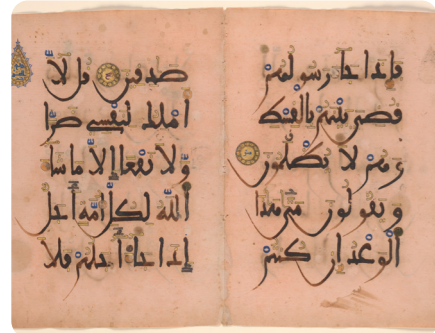 فإذا جا رسولهم
قضي بينهم بالقسط
وهم لا يظلمون
ويقولون متى هذا
الوعد إن كنتم
صدقين قل لا
أملك لنفسي ضرا
ولا نفعا إلا ما شا
الله لكل أمة أجل
إذا جا أجلهم فلا